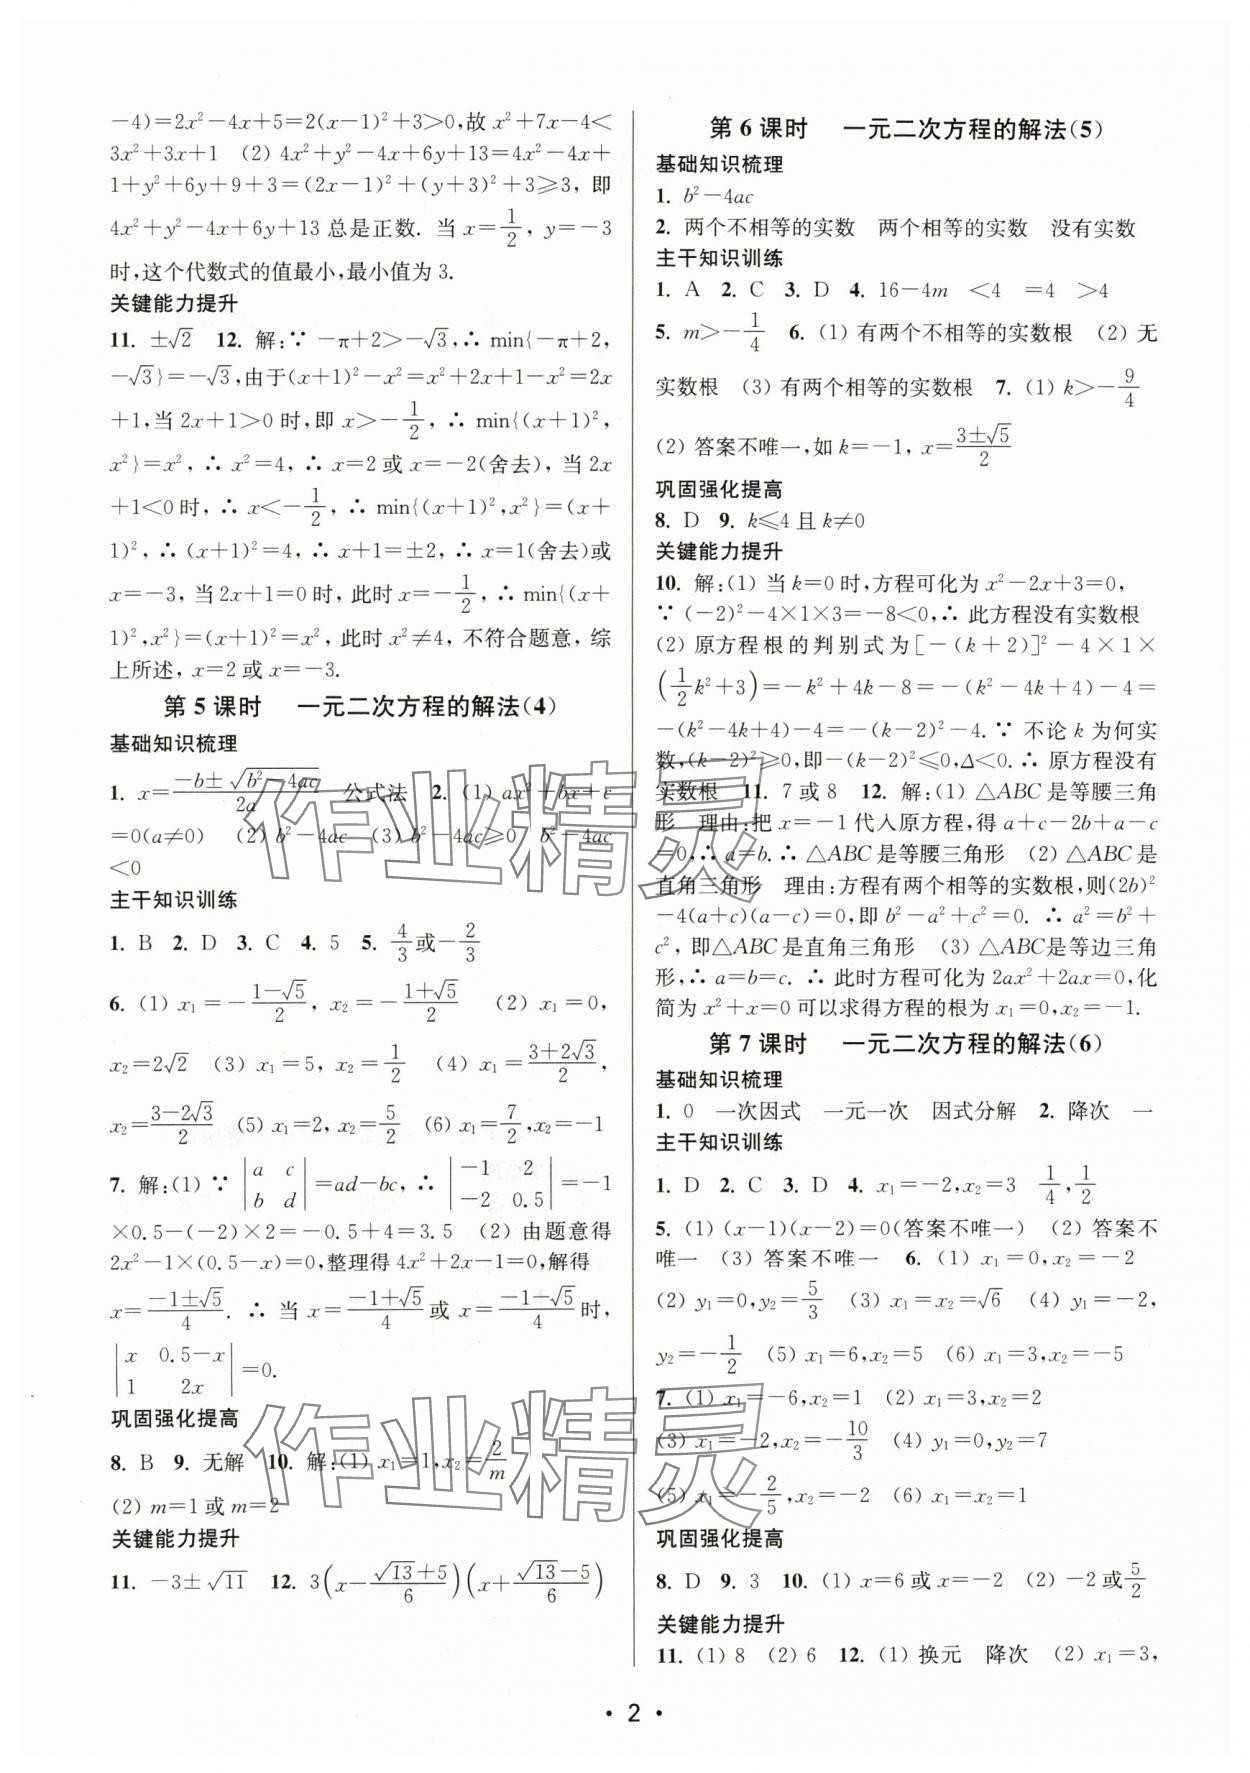 -4)=2x²-4x+5=2(x-1)²+3>0,故 x²+7x-4<
3x²+3x+1 (2) 4x²+y²-4x+6y+13=4x²-4x+
1+y²+6y+9+3=(2x-1)²+(y+3)²+3≥3, 即
4x²+y²-4x+6y+13 总是正数. 当 x=1/2, y=-3
时,这个代数式的值最小,最小值为 3.
关键能力提升
11. ±√2 12. 解:∵ -π+2>-√3,∴ min{-π+2,
-√3}=-√3,由于(x+1)²-x²=x²+2x+1-x²=2x
+1,当 2x+1>0 时,即 x>-1/2, ∴ min{(x+1)²,
x²}=x², ∴ x²=4, ∴ x=2 或 x=-2(舍去), 当 2x
+1<0 时, ∴ x<-1/2, ∴ min{(x+1)²,x²}=(x+
1)², ∴ (x+1)²=4, ∴ x+1=±2, ∴ x=1(舍去)或
x=-3, 当 2x+1=0 时, 此时 x=-1/2, ∴ min{(x+
1)²,x²}=(x+1)²=x², 此时 x²≠4, 不符合题意, 综
上所述, x=2 或 x=-3.
第 5 课时 一元二次方程的解法(4)
基础知识梳理
1. x=(-b±√(b²-4ac))/2a 公式法 2. (1) ax²+bx+c
=0(a≠0) (2) b²-4ac (3) b²-4ac≥0 b²-4ac
<0
主干知识训练
1. B 2. D 3. C 4. 5 5. 4/3或-2/3
6. (1) x₁=-(1-√5)/2, x₂=-(1+√5)/2 (2) x₁=0,
x₂=2√2 (3) x₁=5, x₂=1/2 (4) x₁=(3+2√3)/2,
x₂=(3-2√3)/2 (5) x₁=2, x₂=5/2 (6) x₁=7/2,x₂=-1
7. 解:(1) ∵ |a c; b d|=ad-bc, ∴ |-1 2; -2 0.5|=-1
×0.5-(-2)×2=-0.5+4=3.5 (2) 由题意得
2x²-1×(0.5-x)=0,整理得 4x²+2x-1=0,解得
x=(-1±√5)/4. ∴ 当 x=(-1+√5)/4或 x=(-1-√5)/4时,
|x 0.5-x; 1 2x|=0.
巩固强化提高
8. B 9. 无解 10. 解:(1) x₁=1,x₂=2/m
(2) m=1 或 m=2
关键能力提升
11. -3±√11 12. 3(x-(√13+5)/6)(x+(√13-5)/6)
第 6 课时 一元二次方程的解法(5)
基础知识梳理
1. b²-4ac
2. 两个不相等的实数 两个相等的实数 没有实数
主干知识训练
1. A 2. C 3. D 4. 16-4m <4 =4 >4
5. m>-1/4 6. (1) 有两个不相等的实数根 (2) 无
实数根 (3) 有两个相等的实数根 7. (1) k>-9/4
(2) 答案不唯一,如 k=-1, x=(3±√5)/2
巩固强化提高
8. D 9. k≤4 且 k≠0
关键能力提升
10. 解:(1) 当 k=0 时,方程可化为 x²-2x+3=0,
∵ (-2)²-4×1×3=-8<0,∴ 此方程没有实数根
(2) 原方程根的判别式为[-(k+2)]²-4×1×
(1/2k²+3)=-k²+4k-8=-(k²-4k+4)-4=
-(k²-4k+4)-4=-(k-2)²-4.∵ 不论 k 为何实
数,(k-2)²≥0,即-(k-2)²≤0,Δ<0.∴ 原方程没有
实数根 11. 7 或 8 12. 解:(1) △ABC 是等腰三角
形 理由:把 x=-1 代入原方程,得 a+c-2b+a-c
=0,∴ a=b.∴ △ABC 是等腰三角形 (2) △ABC 是
直角三角形 理由:方程有两个相等的实数根,则(2b)²
-4(a+c)(a-c)=0,即 b²-a²+c²=0. ∴ a²=b²+
c², 即△ABC 是直角三角形 (3) △ABC是等边三角
形,∴ a=b=c. ∴ 此时方程可化为 2ax²+2ax=0,化
简为 x²+x=0 可以求得方程的根为 x₁=0,x₂=-1.
第 7 课时 一元二次方程的解法(6)
基础知识梳理
1. 0 一次因式 一元一次 因式分解 2. 降次 一
主干知识训练
1. D 2. C 3. D 4. x₁=-2,x₂=3 1/4,1/2
5. (1) (x-1)(x-2)=0(答案不唯一) (2) 答案不
唯一 (3) 答案不唯一 6. (1) x₁=0,x₂=-2
(2) y₁=0,y₂=5/3 (3) x₁=x₂=√6 (4) y₁=-2,
y₂=-1/2 (5) x₁=6,x₂=5 (6) x₁=3,x₂=-5
7. (1) x₁=-6,x₂=1 (2) x₁=3,x₂=2
(3) x₁=-2,x₂=-10/3 (4) y₁=0,y₂=7
(5) x₁=-2/5,x₂=-2 (6) x₁=x₂=1
巩固强化提高
8. D 9. 3 10. (1) x=6 或 x=-2 (2) -2 或5/2
关键能力提升
11. (1) 8 (2) 6 12. (1) 换元 降次 (2) x₁=3,
· 2 ·
作业精灵
作业精灵